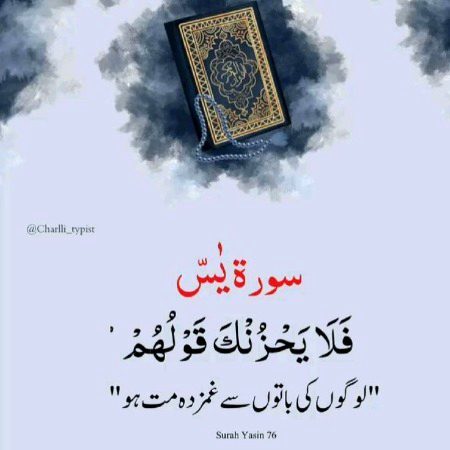 @Charlli_typist
سورة يٰسّ
فَلَا يَحْزُنْكَ قَوْلُهُمْ ۘ
"لوگوں کی باتوں سے غمزدہ مت ہو"
Surah Yasin 76